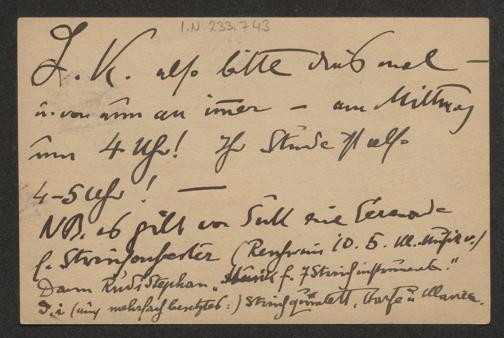 I.N. 233.743
L. K. also bitte diesmal –
u. von nun an immer – am Mittwoch
um 4 Uhr! Ihr Stunde ist also
4–5 Uhr! –
NB. es gibt von Suk eine Serenade
f. Streichorchester (
Dann Rudi Stephan „Musik f. 7 Saiteninstrumente."
D. i (ein mehrfach besetztes:) Streichquintett, Harfe u Klavier.